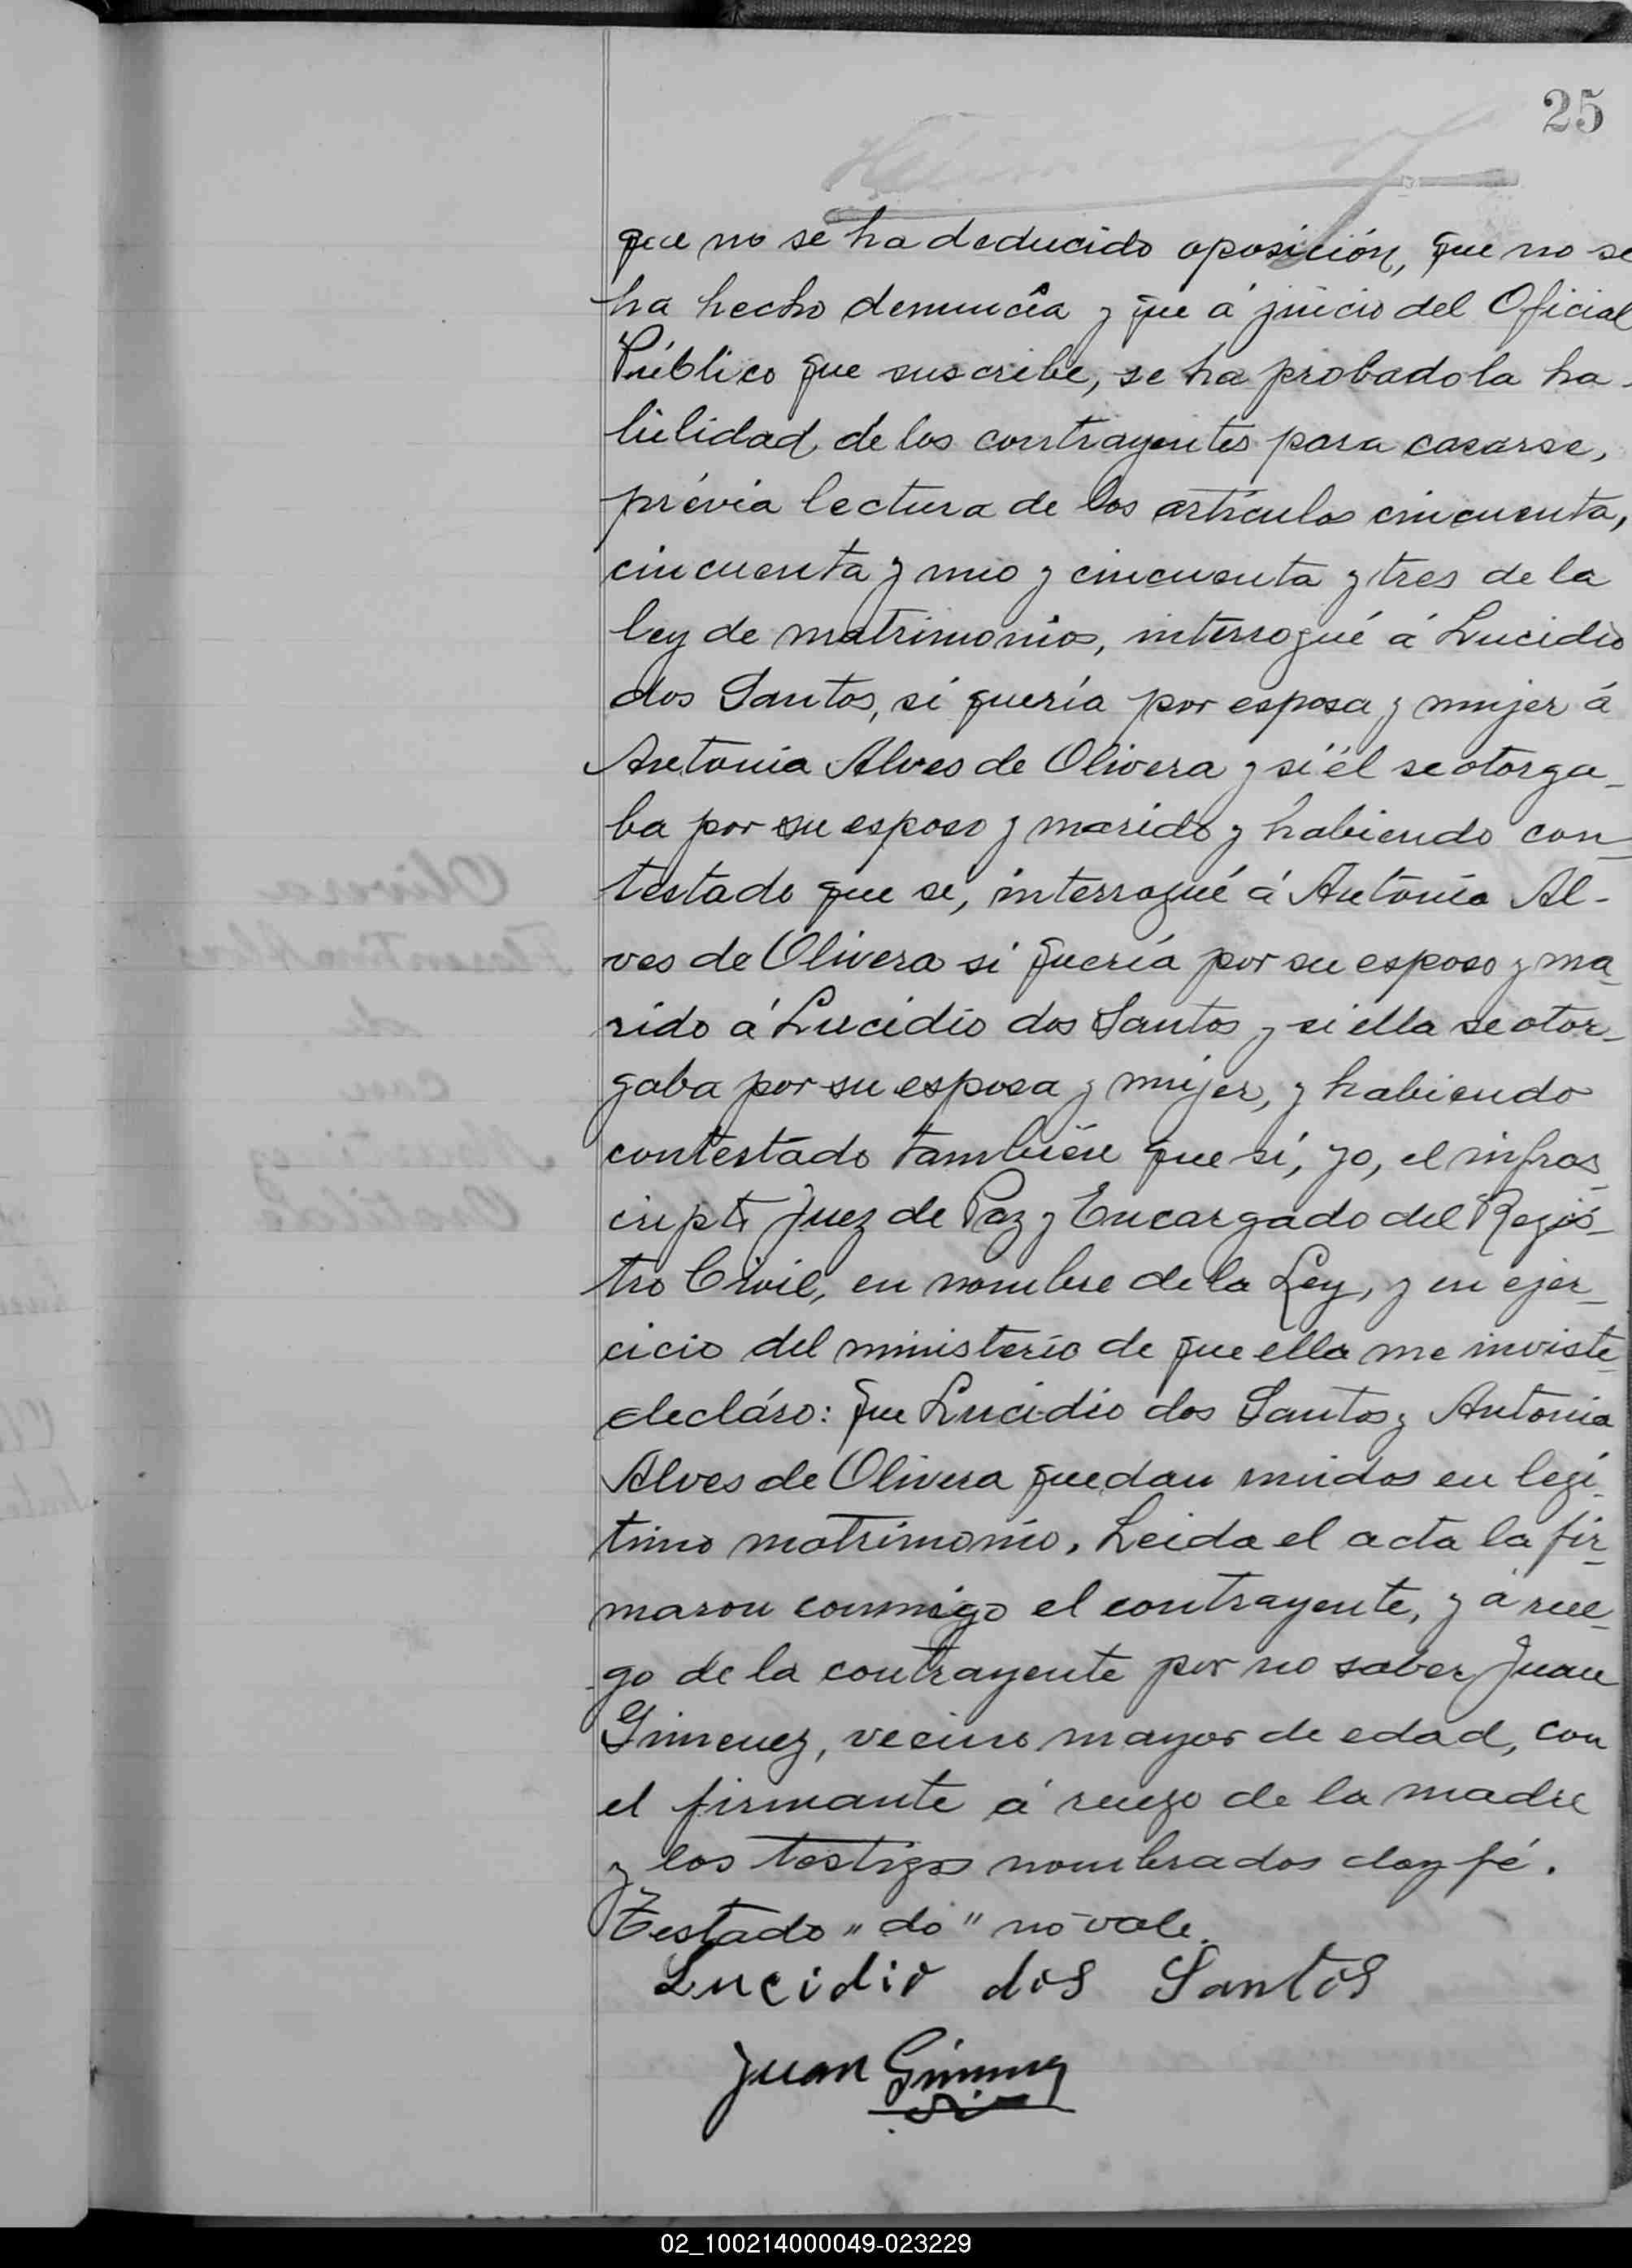 25
que no se ha deducido oposición, que no se
ha hecho denuncia y que á juicio del Oficial
Público que suscribe, se ha probado la ha-
bilidad de los contrayentes para casarse,
prévia lectura de los artículos cincuenta,
cincuenta y uno y cincuenta y tres de la
ley de matrimonios, interrogué á Lucidio
dos Santos, si quería por esposa y mujer á
Antonia Alves de Olivera y si él se otorga-
ba por su esposo y marido y habiendo con-
testado que si, interrogué á Antonia Al-
ves de Olivera si quería por su esposo y ma-
rido á Lucidio dos Santos y si ella se otor-
gaba por su esposa y mujer, y habiendo
contestado también que sí, yo, el infras-
cripto Juez de Paz y Encargado del Regis-
tro Civil, en nombre de la Ley, y en ejer-
cicio del ministerio de que ella me inviste
decláro: que Lucidio dos Santos y Antonia
Alves de Olivera quedan unidos en legí-
timo matrimonio. Leida el acta la fir-
maron conmigo el contrayente, y á rue-
go de la contrayente por no saber Juan
Gimenez, vecino mayor de edad, con
el firmante á ruego de la madre
y los testigos nombrados doy fé.
Testado "do" no vale.
Lucidio dos Santos
Juan Gimenez
02_100214000049-023229